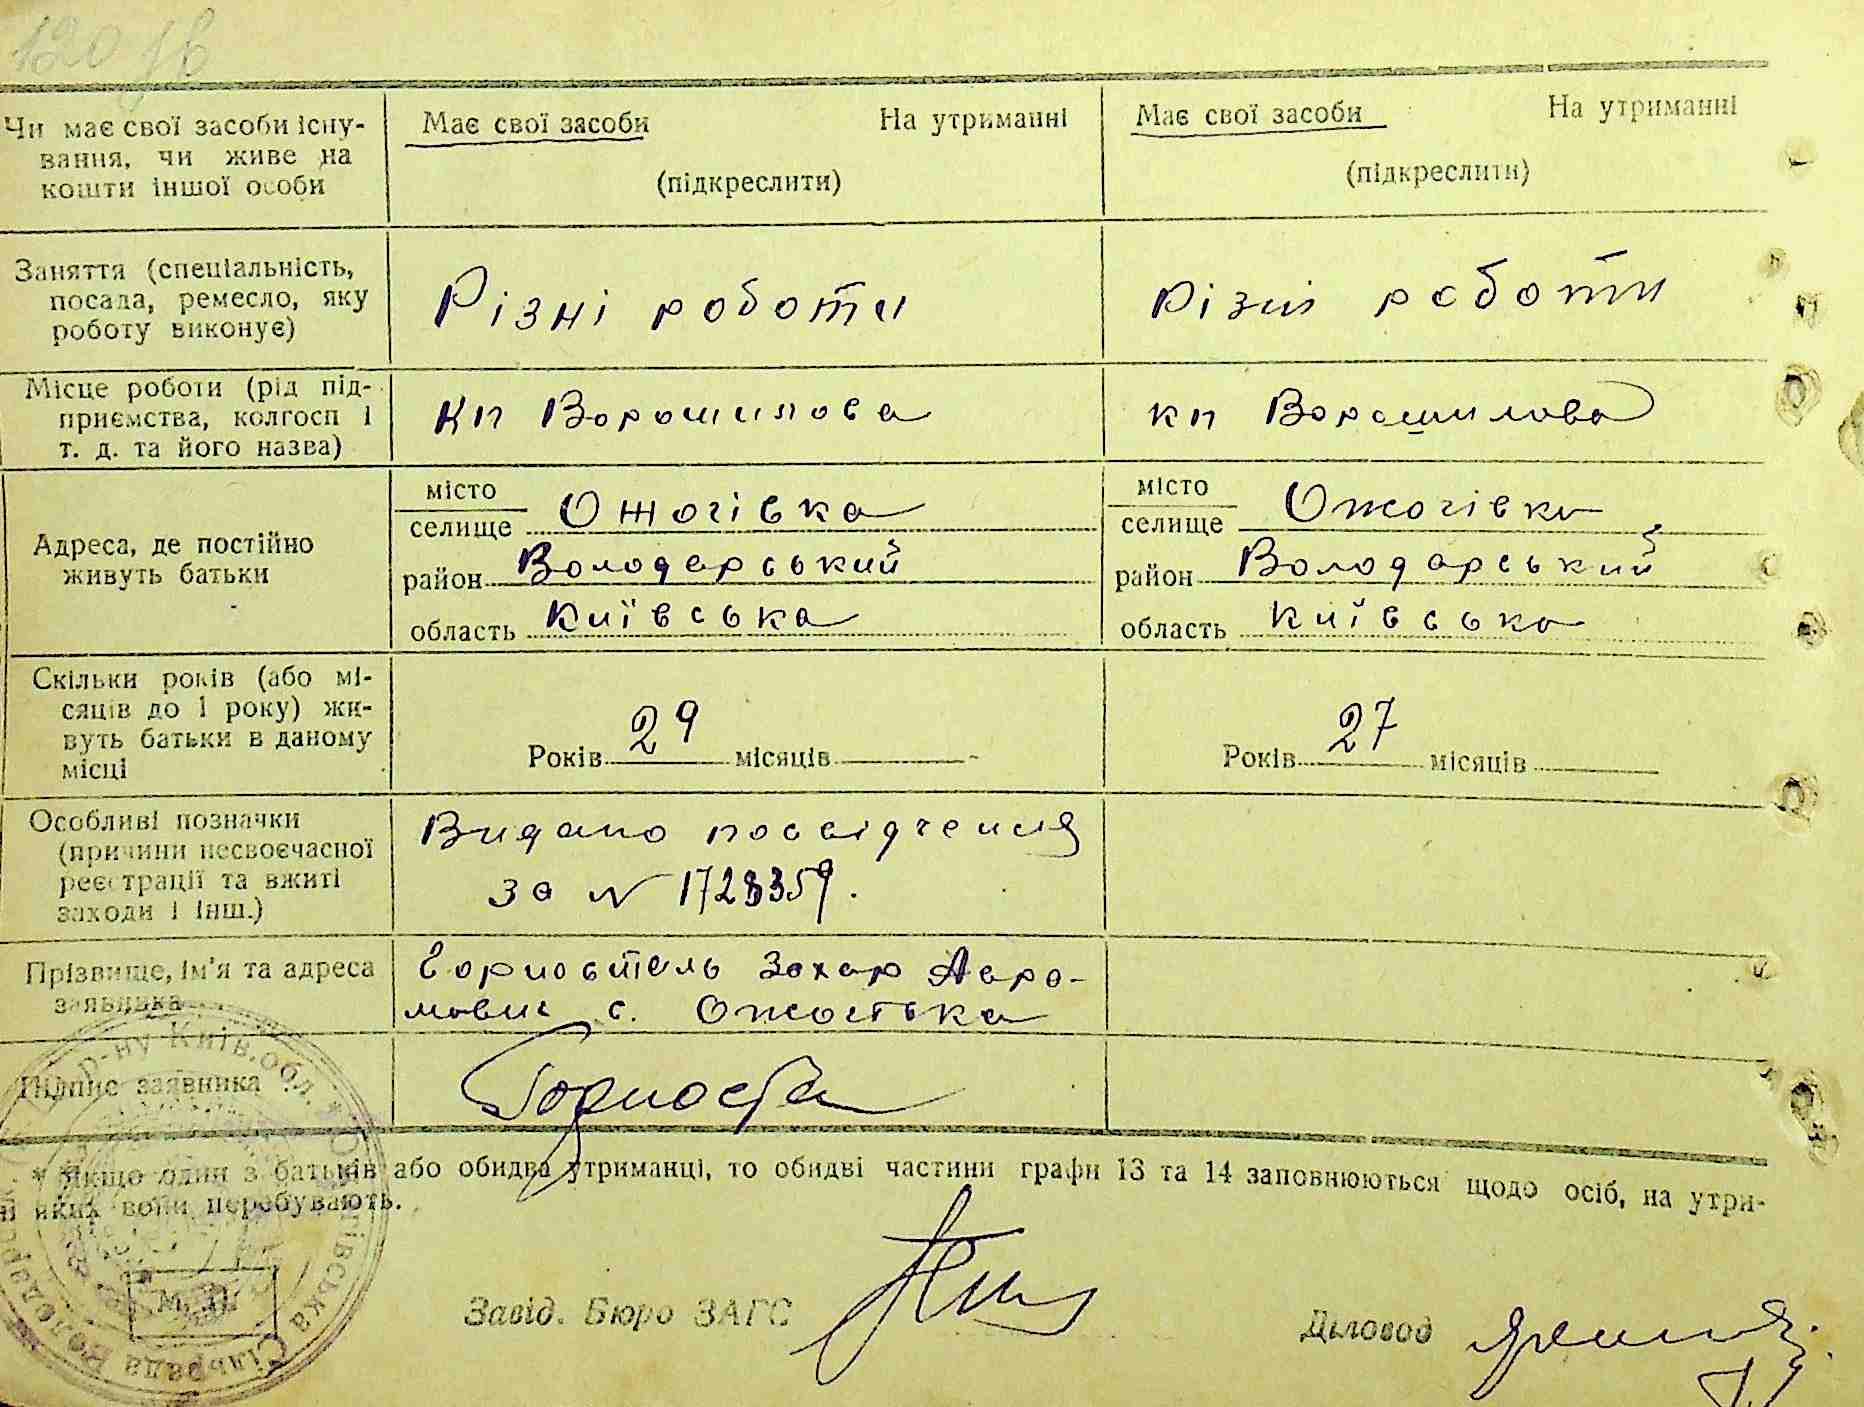 120 зв
Чи має свої засоби існу-
вання, чи живе на
кошти іншої особи
Має свої засоби На утриманні
(підкреслити)
Має свої засоби На утриманні
(підкреслити)
Заняття (спеціальність,
посада, ремесло, яку
роботу виконує)
Різні роботи
Різні роботи
Місце роботи (рід під-
приємства, колгосп і
т. д. та його назва)
Кп Ворошилова
кп Ворошилова
Адреса, де постійно
живуть батьки
місто
селище Ожогівка
район Володарський
область Київська
місто
селище Ожогівка
район Володарський
область Київська
Скільки років (або мі-
сяців до 1 року) жи-
вуть батьки в даному
місці
Років 29 місяців
Років 27 місяців
Особливі позначки
(причини несвоєчасної
реєстрації та вжиті
заходи і інш.)
Видано посвідчення
за N 1728359.
Прізвище, ім'я та адреса
заявника
Горностель Захар Авра-
мович с. Ожогівка
Підпис заявника
* Якщо один з батьків або обидва утриманці, то обидві частини графи 13 та 14 заповнюються щодо осіб, на утри-
ні яких вони перебувають.
М. П.
Завід. Бюро ЗАГС
Діловод
р-ну Київ. обл.
Сільрада